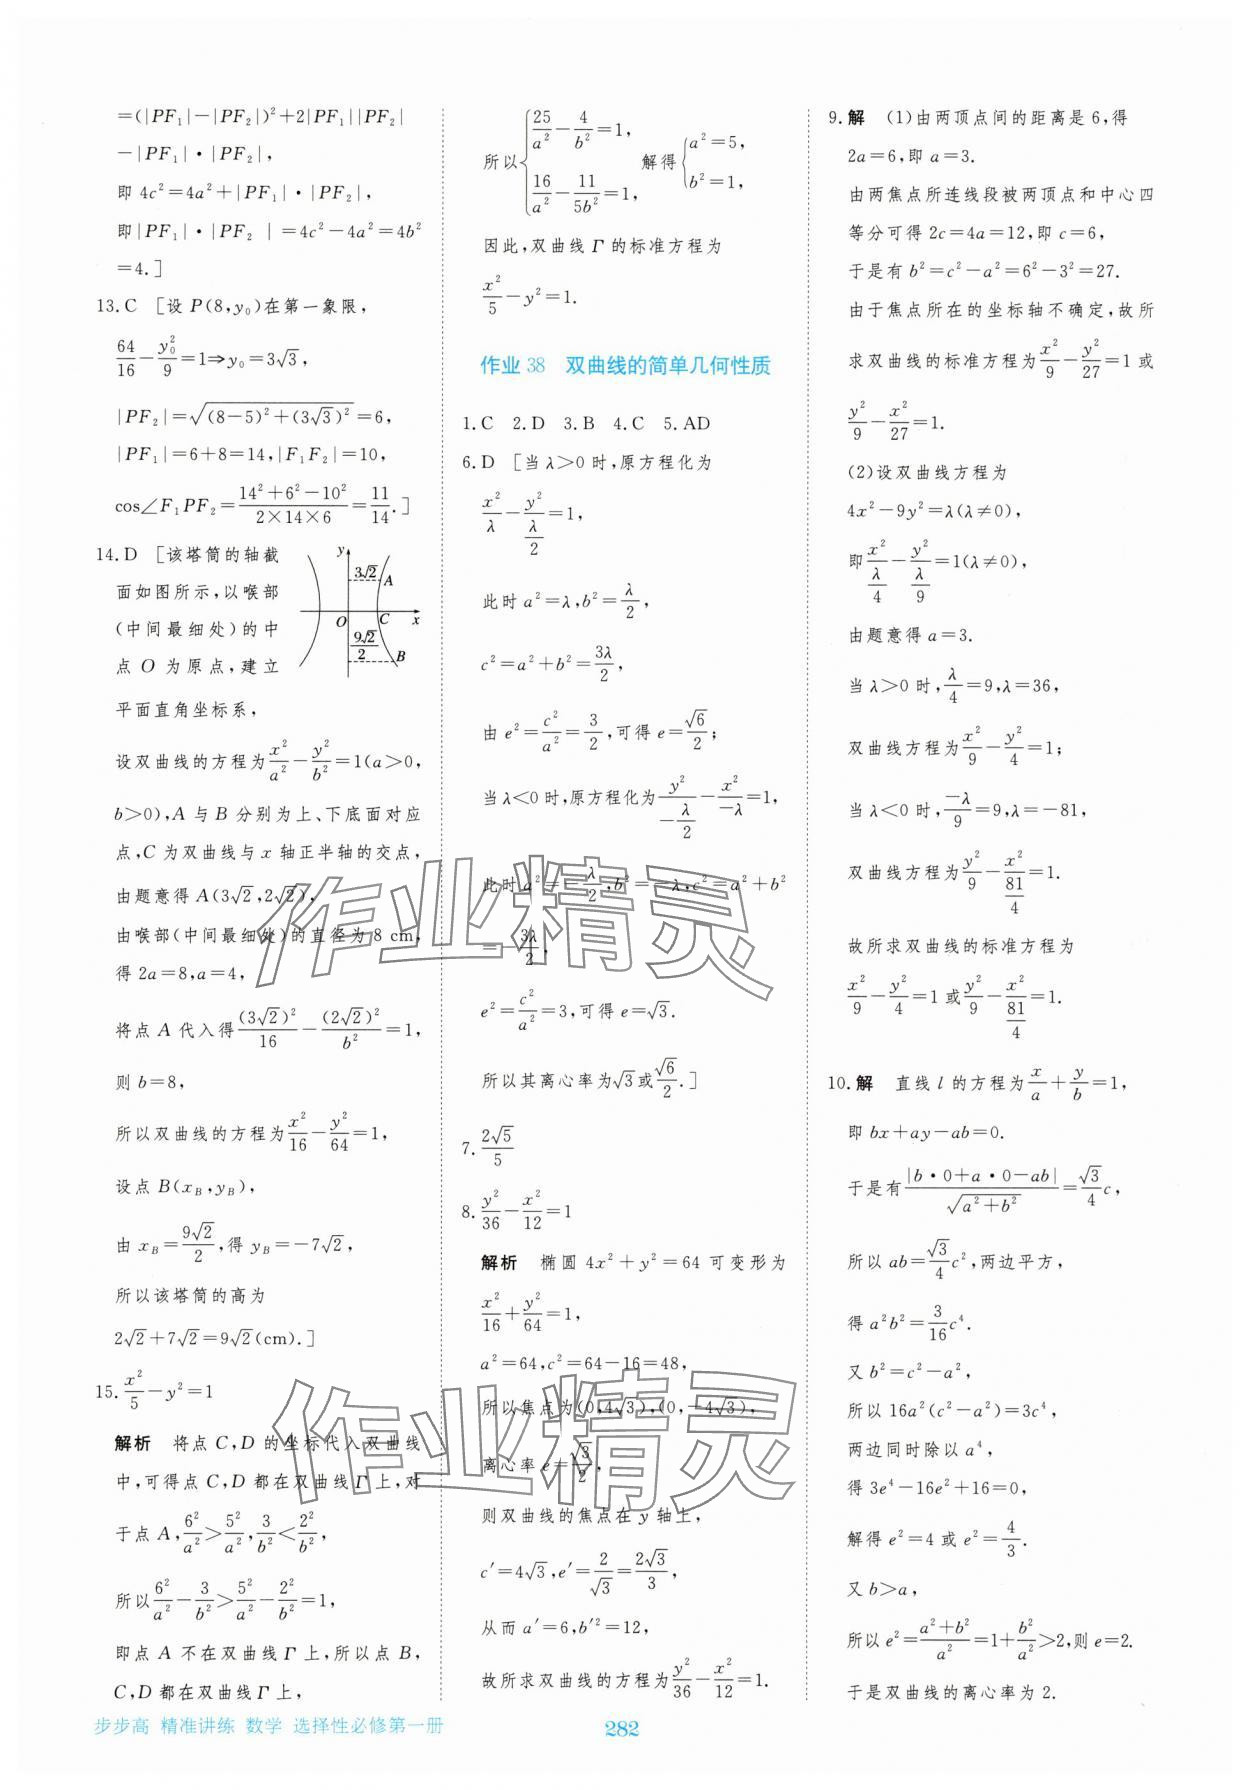 =(|PF₁|-|PF₂|)²+2|PF₁||PF₂|
-|PF₁|·|PF₂|,
即 4c²=4a²+|PF₁|·|PF₂|,
即|PF₁|·|PF₂ |=4c²-4a²=4b²
=4.]
13.C [设 P(8,y₀)在第一象限,
64/16-y₀²/9=1⇒y₀=3√3,
|PF₂|=√((8-5)²+(3√3)²)=6,
|PF₁|=6+8=14,|F₁F₂|=10,
cos∠F₁PF₂=(14²+6²-10²)/(2×14×6)=11/14.]
14.D [该塔筒的轴截
面如图所示,以喉部
(中间最细处)的中
点 O 为原点,建立
平面直角坐标系,
y
3√2
A
O
C
x
9√2/2
B
设双曲线的方程为x²/a²-y²/b²=1(a>0,
b>0),A 与 B 分别为上、下底面对应
点,C 为双曲线与 x 轴正半轴的交点,
由题意得 A(3√2,2√2),
由喉部(中间最细处)的直径为 8 cm,
得 2a=8,a=4,
将点 A 代入得(3√2)²/16-(2√2)²/b²=1,
则 b=8,
所以双曲线的方程为x²/16-y²/64=1,
设点 B(x_B,y_B),
由 x_B=9√2/2,得 y_B=-7√2,
所以该塔筒的高为
2√2+7√2=9√2(cm).]
15.x²/5-y²=1
解析 将点 C,D 的坐标代入双曲线
中,可得点 C,D 都在双曲线 Γ 上,对
于点 A,6²/a²>5²/a²,3/b²<2²/b²,
所以6²/a²-3/b²>5²/a²-2²/b²=1,
即点 A 不在双曲线 Γ 上,所以点 B,
C,D 都在双曲线 Γ 上,
所以{25/a²-4/b²=1, 16/a²-11/5b²=1, 解得{a²=5, b²=1,
因此,双曲线 Γ 的标准方程为
x²/5-y²=1.
作业 38 双曲线的简单几何性质
1.C 2.D 3.B 4.C 5.AD
6.D [当 λ>0 时,原方程化为
x²/λ-y²/(λ/2)=1,
此时 a²=λ,b²=λ/2,
c²=a²+b²=3λ/2,
由 e²=c²/a²=3/2,可得 e=√6/2;
当 λ<0 时,原方程化为y²/(-λ/2)-x²/-λ=1,
此时 a²=-λ/2,b²=-λ,c²=a²+b²
=-3λ/2,
e²=c²/a²=3,可得 e=√3.
所以其离心率为√3或√6/2.]
7.2√5/5
8.y²/36-x²/12=1
解析 椭圆 4x²+y²=64 可变形为
x²/16+y²/64=1,
a²=64,c²=64-16=48,
所以焦点为(0,4√3),(0,-4√3),
离心率 e=√3/2,
则双曲线的焦点在 y 轴上,
c′=4√3,e′=2/√3=2√3/3,
从而 a′=6,b′²=12,
故所求双曲线的方程为y²/36-x²/12=1.
9.解 (1)由两顶点间的距离是 6,得
2a=6,即 a=3.
由两焦点所连线段被两顶点和中心四
等分可得 2c=4a=12,即 c=6,
于是有 b²=c²-a²=6²-3²=27.
由于焦点所在的坐标轴不确定,故所
求双曲线的标准方程为x²/9-y²/27=1或
y²/9-x²/27=1.
(2)设双曲线方程为
4x²-9y²=λ(λ≠0),
即x²/(λ/4)-y²/(λ/9)=1(λ≠0),
由题意得 a=3.
当 λ>0 时,λ/4=9,λ=36,
双曲线方程为x²/9-y²/4=1;
当 λ<0 时,-λ/9=9,λ=-81,
双曲线方程为y²/9-x²/(81/4)=1.
故所求双曲线的标准方程为
x²/9-y²/4=1 或y²/9-x²/(81/4)=1.
10.解 直线 l 的方程为x/a+y/b=1,
即 bx+ay-ab=0.
于是有|b·0+a·0-ab|/√(a²+b²)=√3/4c,
所以 ab=√3/4c²,两边平方,
得 a²b²=3/16c⁴.
又 b²=c²-a²,
所以 16a²(c²-a²)=3c⁴,
两边同时除以 a⁴,
得 3e⁴-16e²+16=0,
解得 e²=4 或 e²=4/3.
又 b>a,
所以 e²=(a²+b²)/a²=1+b²/a²>2,则 e=2.
于是双曲线的离心率为 2.
作业精灵
作业精灵
步步高 精准讲练 数学 选择性必修第一册
282